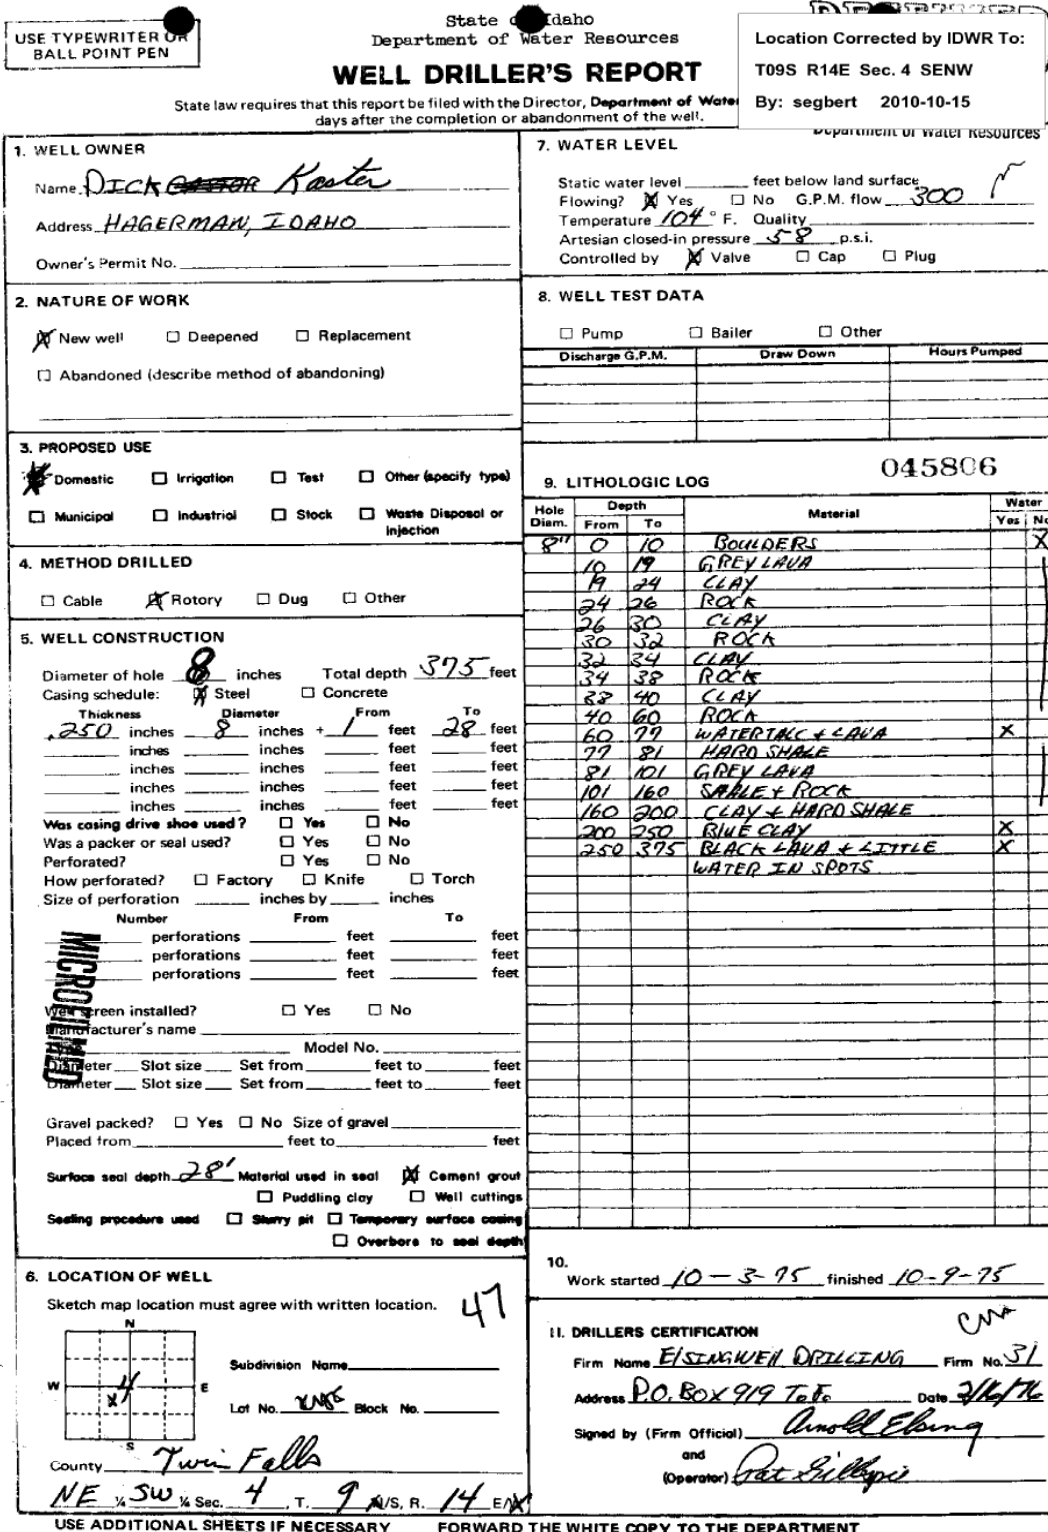 USE TYPEWRITER OR
BALL POINT PEN
State of Idaho
Department of Water Resources
WELL DRILLER'S REPORT
State law requires that this report be filed with the Director, Department of Wate
days after the completion or abandonment of the well.
Location Corrected by IDWR To:
T09S R14E Sec. 4 SENW
By: segbert 2010-10-15
Department of Water Resources
1. WELL OWNER
Name DICK Kaster
Address HAGERMAN, IDAHO
Owner's Permit No.
2. NATURE OF WORK
X New well ☐ Deepened ☐ Replacement
☐ Abandoned (describe method of abandoning)
3. PROPOSED USE
X Domestic ☐ Irrigation ☐ Test ☐ Other (specify type)
☐ Municipal ☐ Industrial ☐ Stock ☐ Waste Disposal or
Injection
4. METHOD DRILLED
☐ Cable X Rotory ☐ Dug ☐ Other
5. WELL CONSTRUCTION
Diameter of hole 8 inches Total depth 375 feet
Casing schedule: X Steel ☐ Concrete
Thickness Diameter From To
.250 inches 8 inches + 1 feet 28 feet
inches inches feet feet
inches inches feet feet
inches inches feet feet
inches inches feet feet
Was casing drive shoe used? ☐ Yes ☐ No
Was a packer or seal used? ☐ Yes ☐ No
Perforated? ☐ Yes ☐ No
How perforated? ☐ Factory ☐ Knife ☐ Torch
Size of perforation inches by inches
Number From To
perforations feet feet
perforations feet feet
perforations feet feet
MICROFILMED
Well screen installed? ☐ Yes ☐ No
Manufacturer's name
Type Model No.
Diameter Slot size Set from feet to feet
Diameter Slot size Set from feet to feet
Gravel packed? ☐ Yes ☐ No Size of gravel
Placed from feet to feet
Surface seal depth 28' Material used in seal X Cement grout
☐ Puddling clay ☐ Well cuttings
Sealing procedure used ☐ Slurry pit ☐ Temporary surface casing
☐ Overbore to seal depth
6. LOCATION OF WELL
Sketch map location must agree with written location.
47
N
W 4 X E
S
Subdivision Name
Lot No. Block No.
County Twin Falls
NE ¼ SW ¼ Sec. 4, T. 9 N/S, R. 14 E/W
7. WATER LEVEL
Static water level feet below land surface
Flowing? X Yes ☐ No G.P.M. flow 300
Temperature 104 ° F. Quality
Artesian closed-in pressure 58 p.s.i.
Controlled by X Valve ☐ Cap ☐ Plug
8. WELL TEST DATA
☐ Pump ☐ Bailer ☐ Other
Discharge G.P.M. Draw Down Hours Pumped
045806
9. LITHOLOGIC LOG
Hole Diam. Depth Material Water
From To Yes No
8" 0 10 BOULDERS X
10 19 GREY LAVA
19 24 CLAY
24 26 ROCK
26 30 CLAY
30 32 ROCK
32 34 CLAY
34 38 ROCK
38 40 CLAY
40 60 ROCK
60 77 WATERTALC + LAVA X
77 81 HARD SHALE
81 101 GREY LAVA
101 160 SHALE + ROCK
160 200 CLAY + HARD SHALE
200 250 BLUE CLAY X
250 375 BLACK LAVA + LITTLE X
WATER IN SPOTS
10.
Work started 10-3-75 finished 10-9-75
11. DRILLERS CERTIFICATION
Firm Name ElSINGWEll DRILLING Firm No. 31
Address P.O. BOX 919 T.F. Date 2/16/76
Signed by (Firm Official) Arnold Elsing
and
(Operator) Pat Gillespie
USE ADDITIONAL SHEETS IF NECESSARY FORWARD THE WHITE COPY TO THE DEPARTMENT